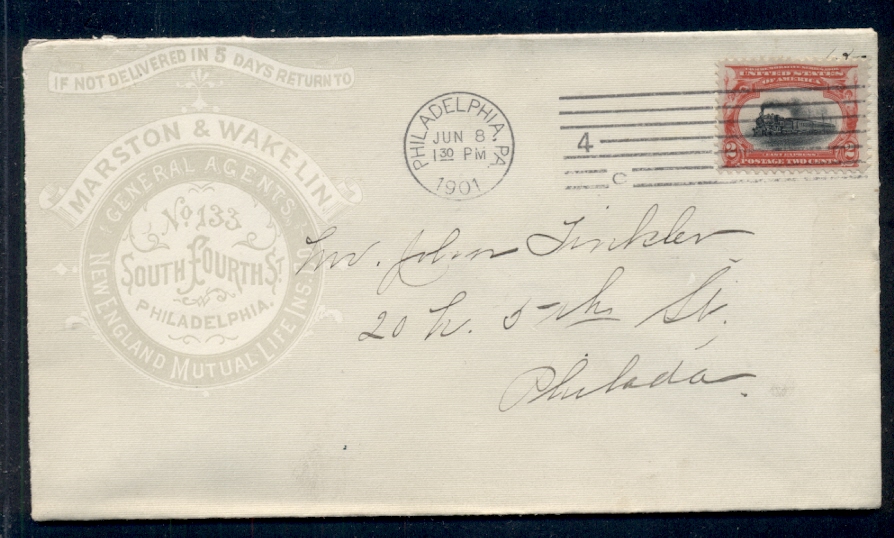 IF NOT DELIVERED IN 5 DAYS RETURN TO
MARSTON & WAKELIN
GENERAL AGENTS.
NEW ENGLAND MUTUAL LIFE INS. CO.
No. 133
SOUTH FOURTH ST.
PHILADELPHIA.
PHILADELPHIA, PA.
JUN 8
1 30 PM
1901
4
C
UNITED STATES
OF AMERICA
FAST EXPRESS
2 2
POSTAGE TWO CENTS
Mr. John Tinkler
20 N. 5th St.
Philada